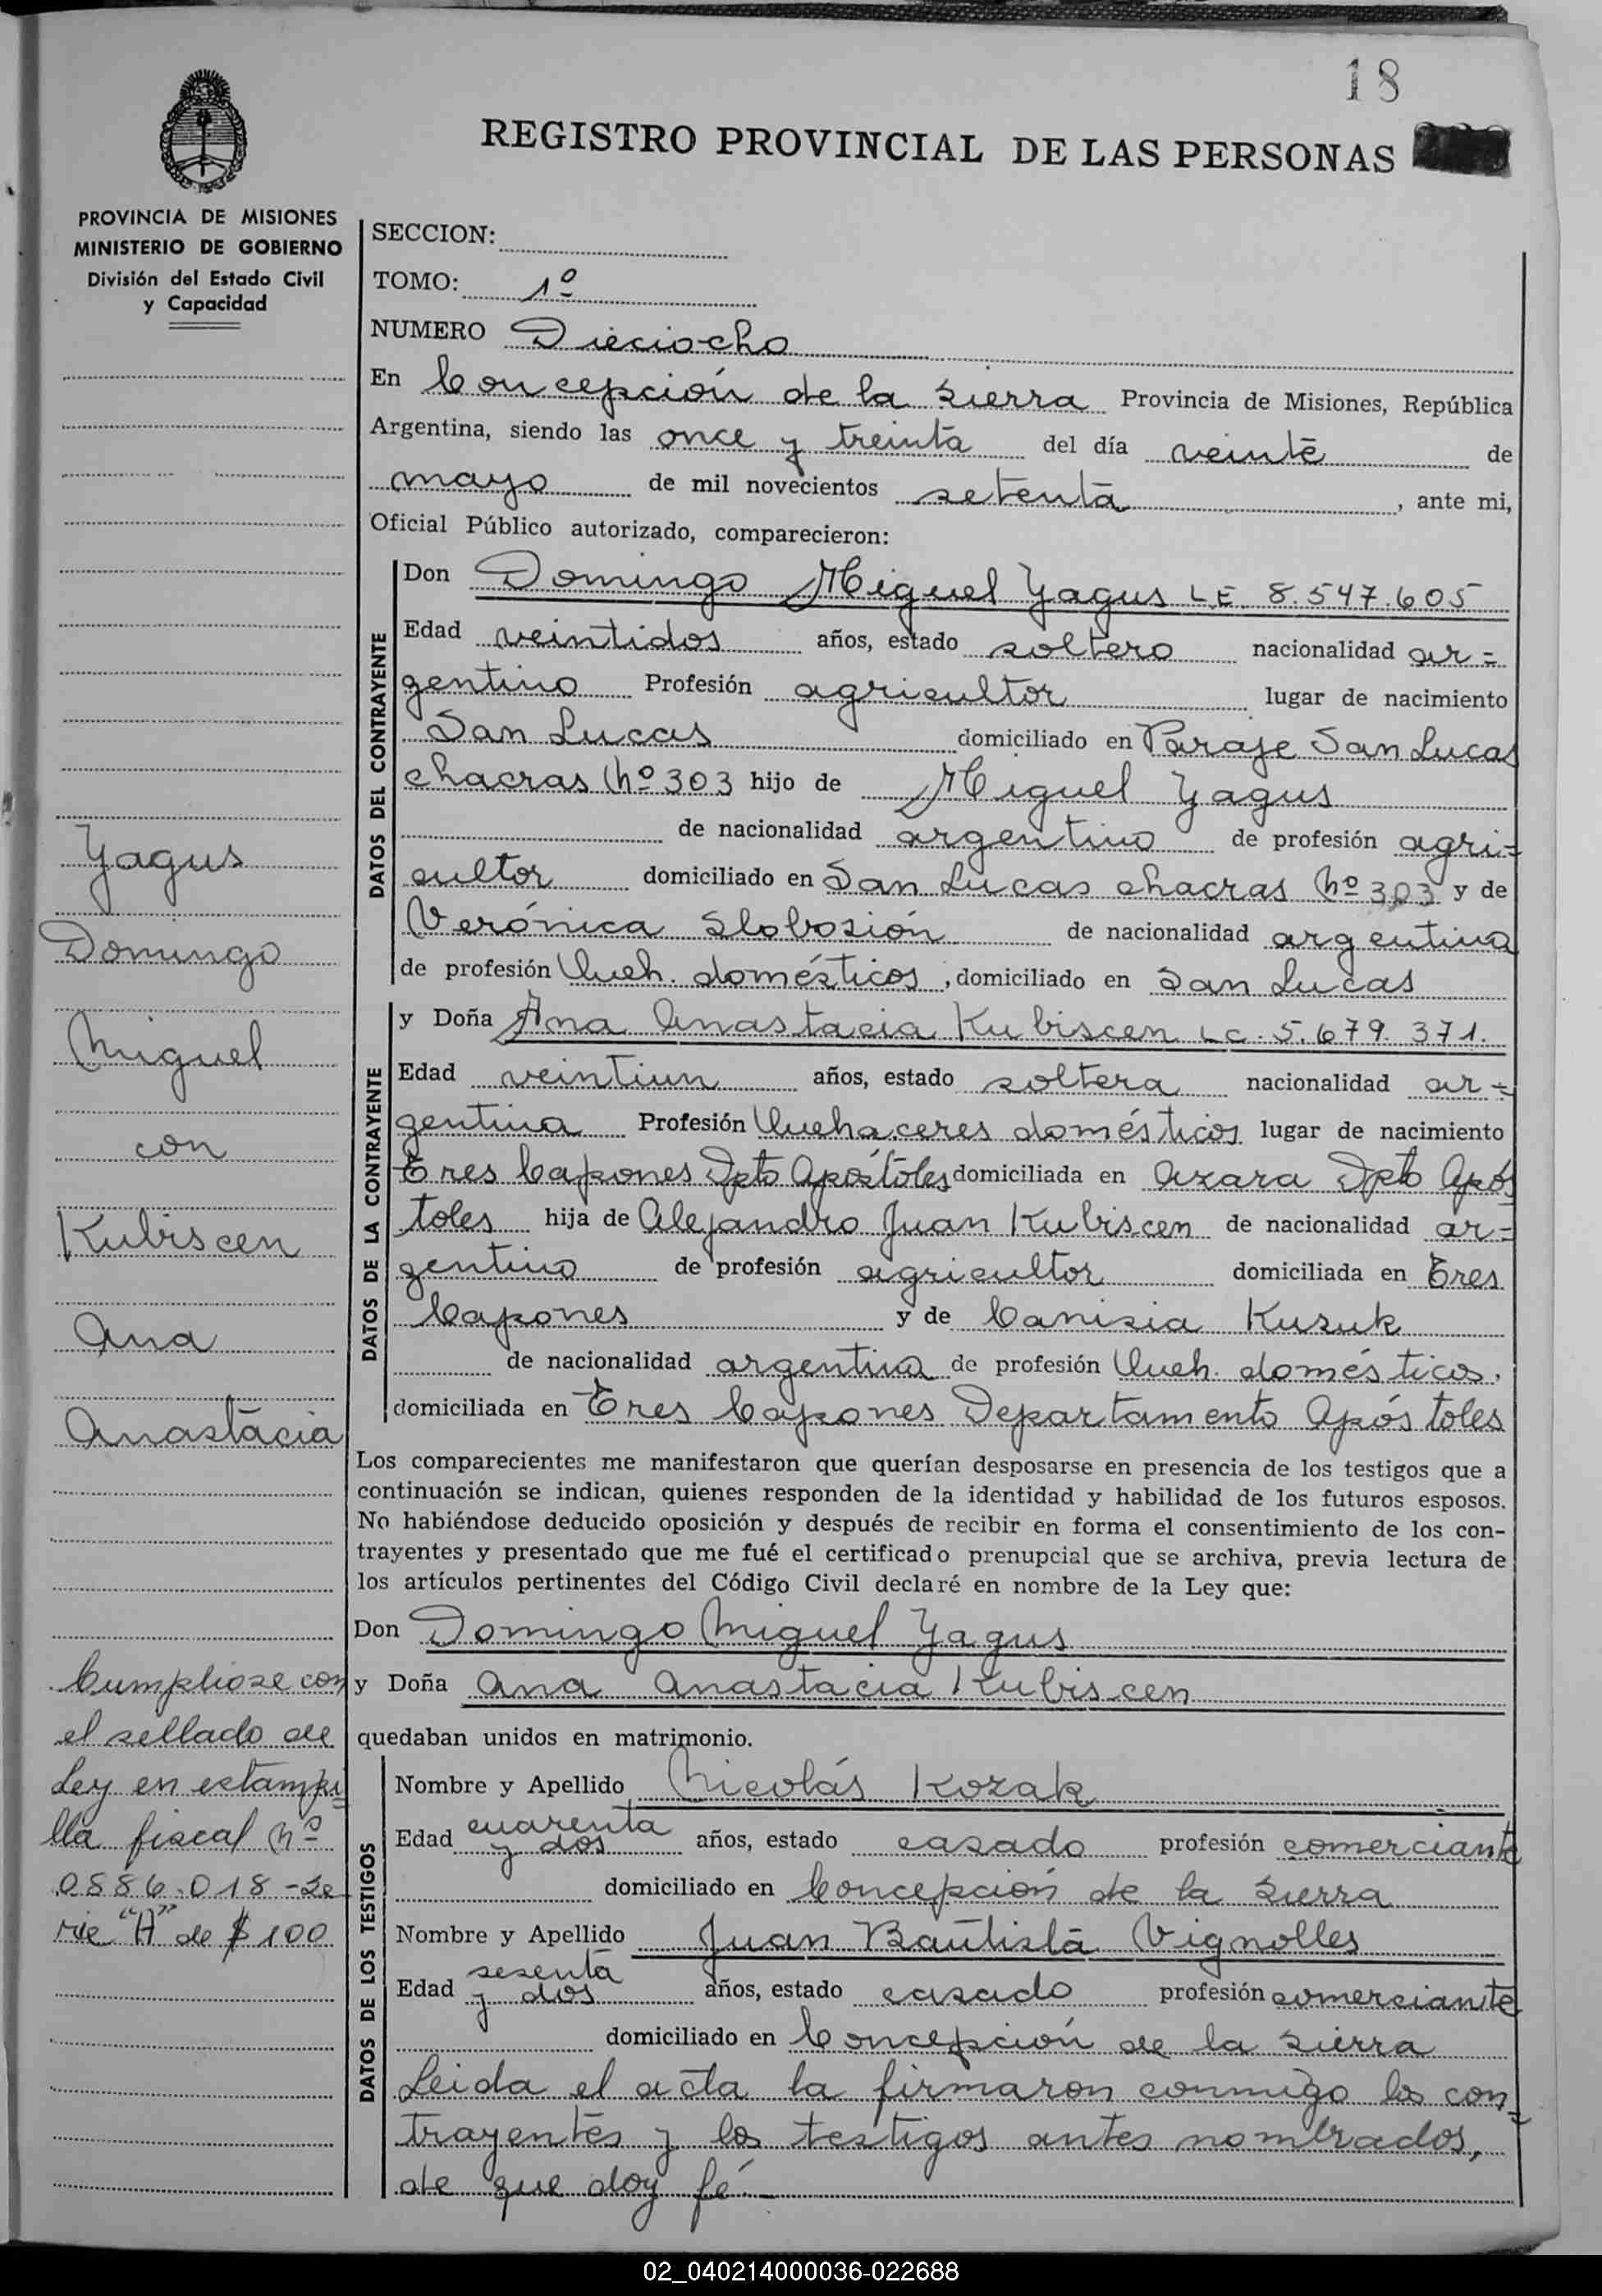 18
REGISTRO PROVINCIAL DE LAS PERSONAS
PROVINCIA DE MISIONES
MINISTERIO DE GOBIERNO
División del Estado Civil
y Capacidad
SECCION:
TOMO: 1º
NUMERO Dieciocho
En Concepción de la Sierra Provincia de Misiones, República
Argentina, siendo las once y treinta del día veinte de
mayo de mil novecientos setenta, ante mi,
Oficial Público autorizado, comparecieron:
DATOS DEL CONTRAYENTE
Don Domingo Miguel Yagus L.E. 8.547.605
Edad veintidos años, estado soltero nacionalidad ar=
gentino Profesión agricultor lugar de nacimiento
San Lucas domiciliado en Paraje San Lucas
chacras Nº 303 hijo de Miguel Yagus
de nacionalidad argentino de profesión agri=
cultor domiciliado en San Lucas chacras Nº 303 y de
Verónica Slobosión de nacionalidad argentina
de profesión Queh. domésticos, domiciliado en San Lucas
DATOS DE LA CONTRAYENTE
y Doña Ana Anastacia Kubiscen L.C. 5.679.371.
Edad veintiun años, estado soltera nacionalidad ar=
gentina Profesión Quehaceres domésticos lugar de nacimiento
Tres Capones Dpto Apóstoles domiciliada en Azara Dpto Após
toles hija de Alejandro Juan Kubiscen de nacionalidad ar=
gentino de profesión agricultor domiciliada en Tres
Capones y de Canisia Kusuk
de nacionalidad argentina de profesión Queh. domésticos,
domiciliada en Tres Capones Departamento Apóstoles
Los comparecientes me manifestaron que querían desposarse en presencia de los testigos que a
continuación se indican, quienes responden de la identidad y habilidad de los futuros esposos.
No habiéndose deducido oposición y después de recibir en forma el consentimiento de los con-
trayentes y presentado que me fué el certificado prenupcial que se archiva, previa lectura de
los artículos pertinentes del Código Civil declaré en nombre de la Ley que:
Don Domingo Miguel Yagus
y Doña Ana Anastacia Kubiscen
quedaban unidos en matrimonio.
DATOS DE LOS TESTIGOS
Nombre y Apellido Nicolás Kozak
Edad cuarenta y dos años, estado casado profesión comerciante
domiciliado en Concepción de la Sierra
Nombre y Apellido Juan Bautista Vignolles
Edad sesenta y dos años, estado casado profesión comerciante
domiciliado en Concepción de la Sierra
Leida el acta la firmaron conmigo los con=
trayentes y los testigos antes nombrados,
de que doy fé.-
Yagus
Domingo
Miguel
con
Kubiscen
Ana
Anastacia
Cumpliose con
el sellado de
Ley en estampi=
lla fiscal Nº
0886.018-Se
rie "A" de $100
02_040214000036-022688